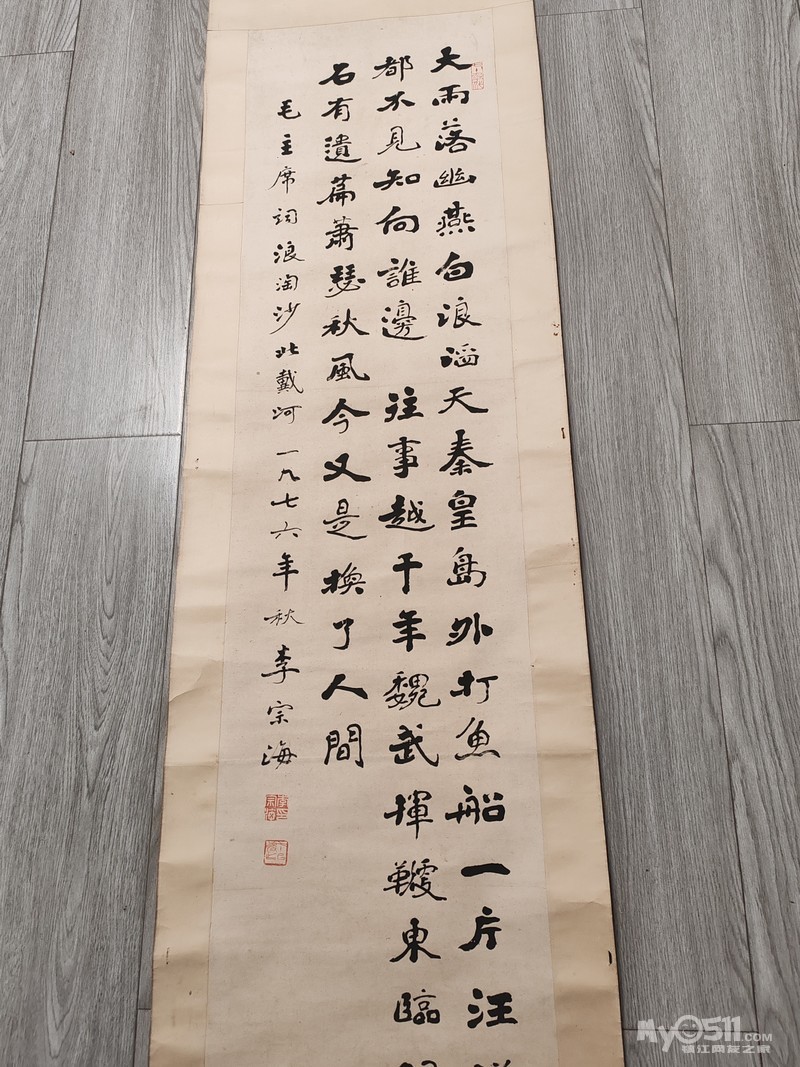 大雨落幽燕白浪滔天秦皇島外打魚船一片汪
都不見知向誰邊 往事越千年魏武揮鞭東臨
石有遺篇蕭瑟秋風今又是換了人間
毛主席詞浪淘沙北戴河 一九七六年秋 李宗海
My0511.COM
镇江网友之家